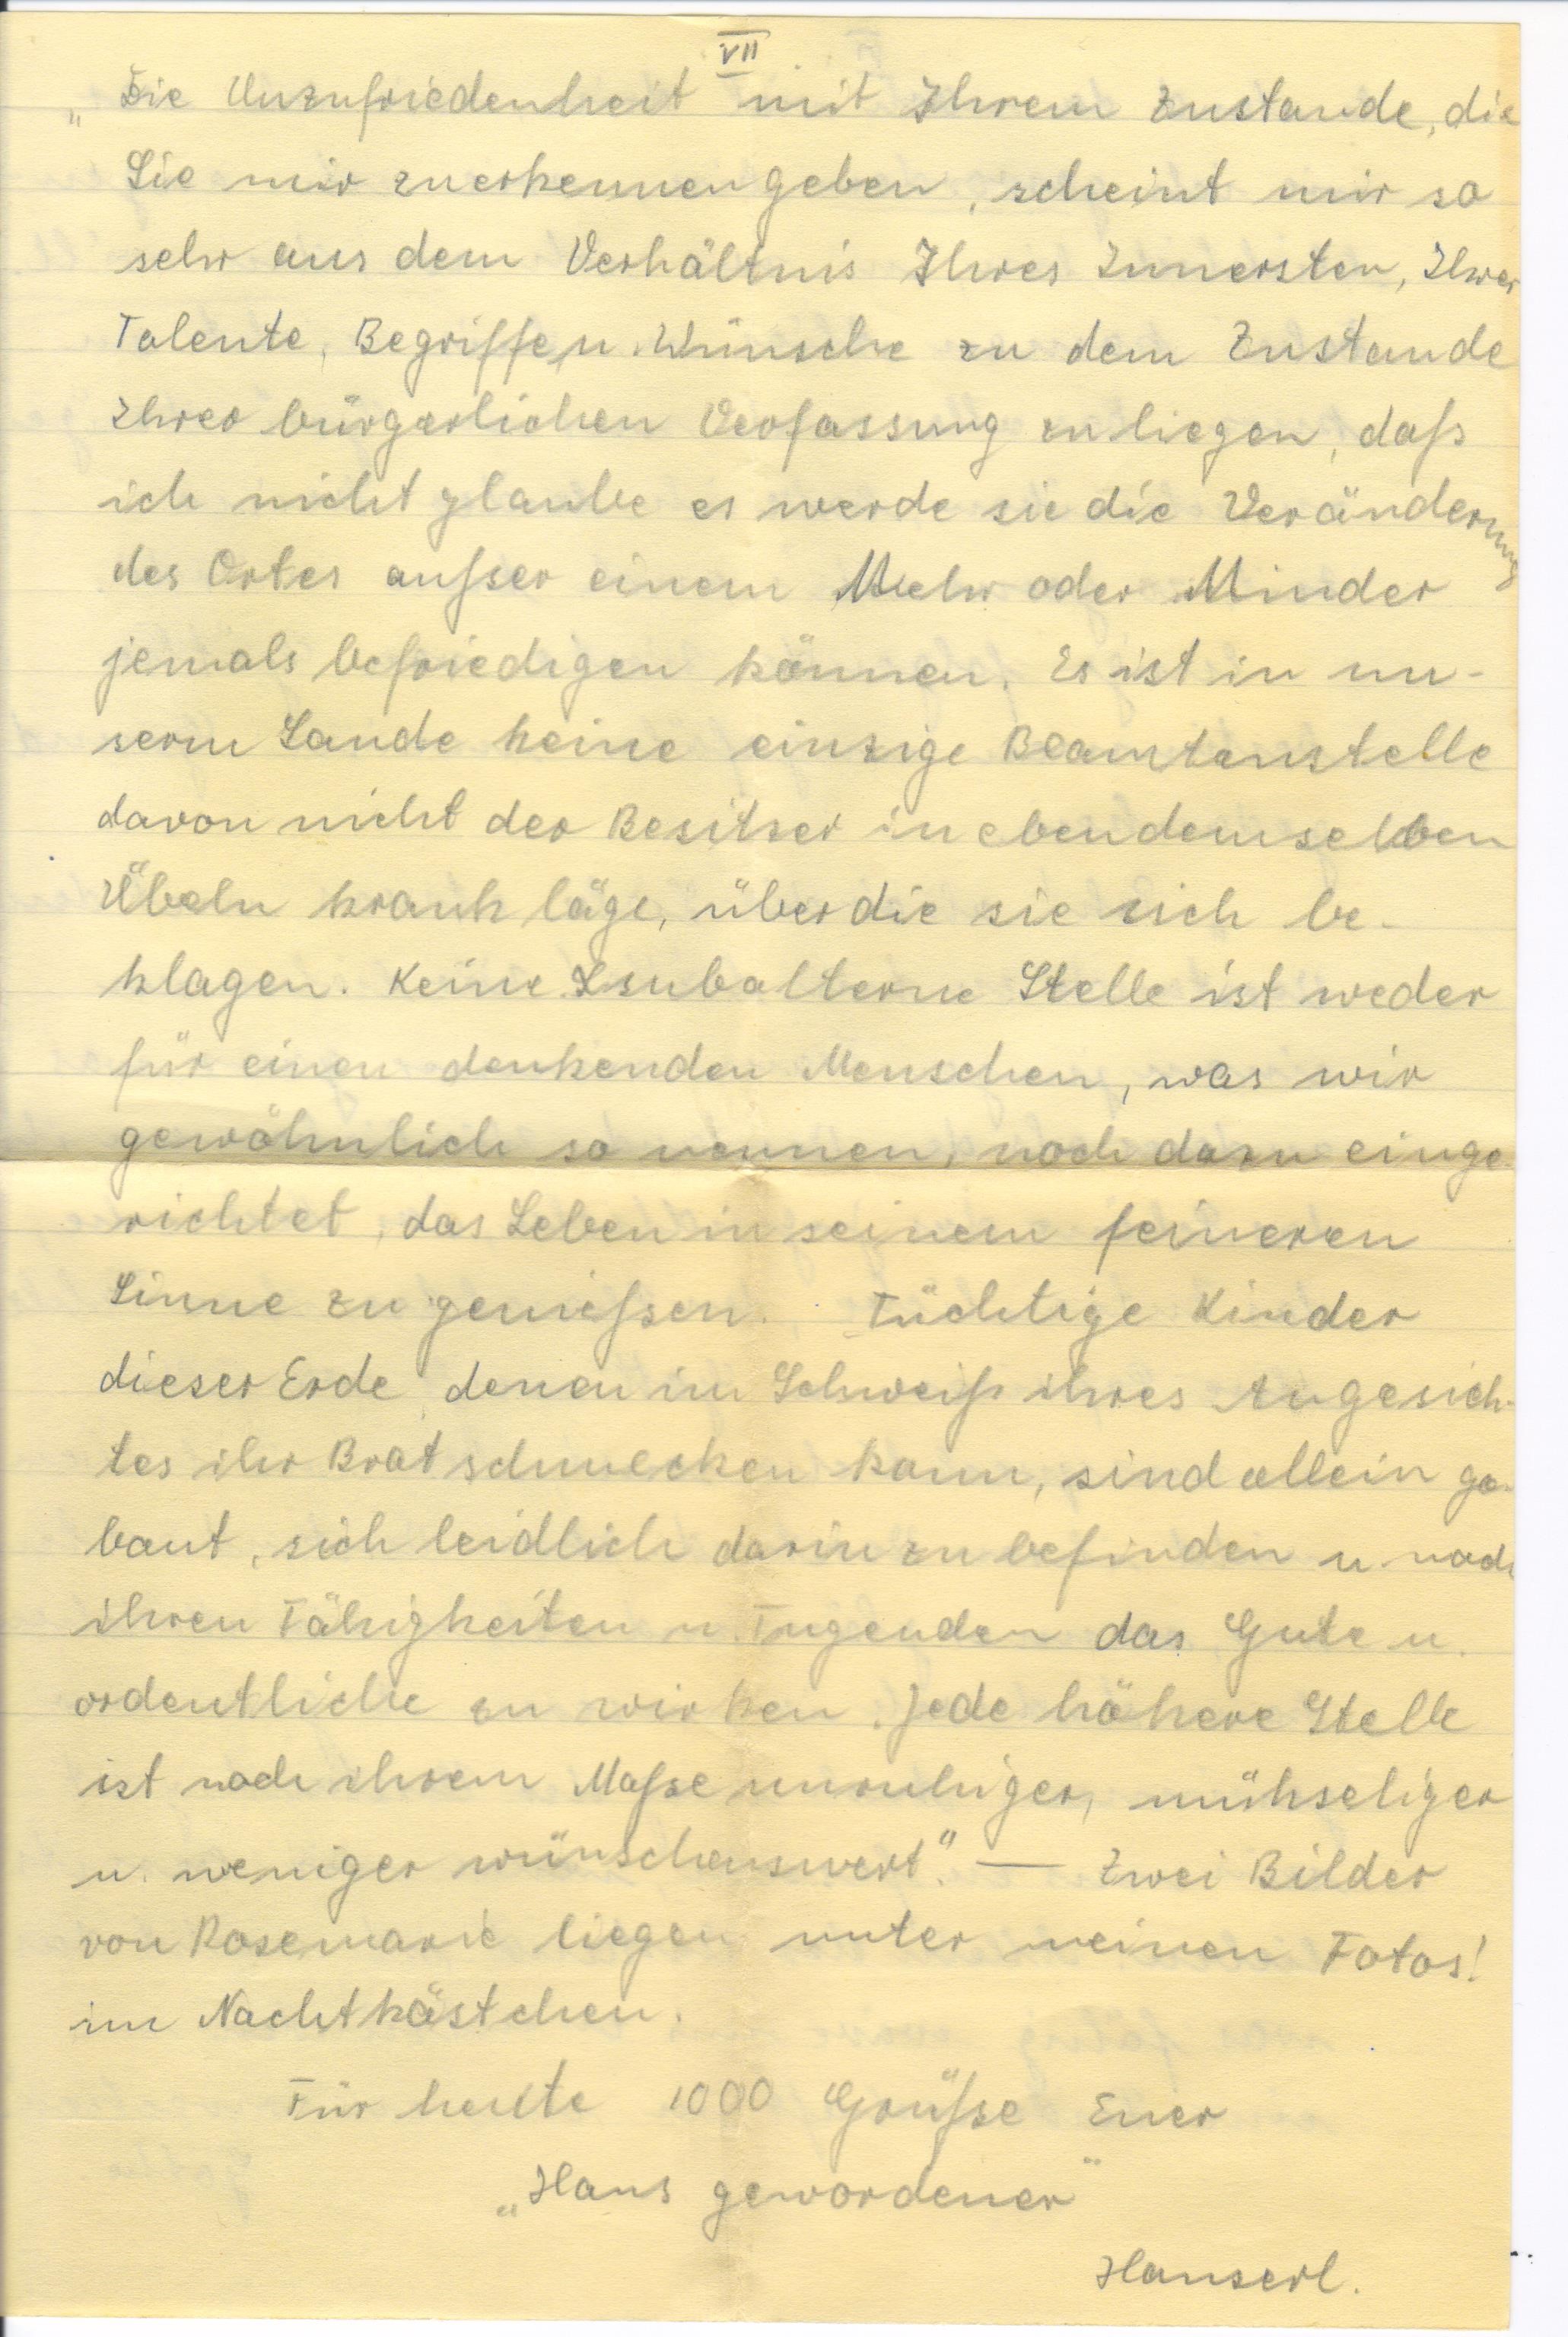 VII
„Die Unzufriedenheit mit Ihrem Zustande, die
Sie mir zuerkennen geben, scheint mir so
sehr aus dem Verhältnis Ihres Innersten, Ihrer
Talente, Begriffe u. Wünsche zu dem Zustande
Ihrer bürgerlichen Verfassung zu liegen, daß
ich nicht glaube es werde sie die Veränderung
des Ortes außser einem Mehr oder Minder
jemals befriedigen können. Es ist in un-
serm Lande keine einzige Beamtenstelle
davon nicht der Besitzer in ebendemselben
Übeln krank läge, über die sie sich be-
klagen. Keine subalterne Stelle ist weder
für einen denkenden Menschen, was wir
gewöhnlich so nennen, noch dazu einge-
richtet, das Leben in seinem feineren
Sinne zu genießsen. Tüchtige Kinder
dieser Erde, denen im Schweiß ihres Angesich-
tes ihr Brot schmecken kann, sind allein ge-
baut, sich leidlich darin zu befinden u. nach
ihren Fähigkeiten u. Tugenden das Gute u.
ordentliche zu wirken. Jede höhere Stelle
ist nach ihrem Maßse unruhiger, mühseliger
u. weniger wünschenswert." — Zwei Bilder
von Rosemarie liegen unter meinen Fotos!
im Nachtkästchen.
Für heute 1000 Grüßse Euer
„Hans gewordener"
Hanserl.